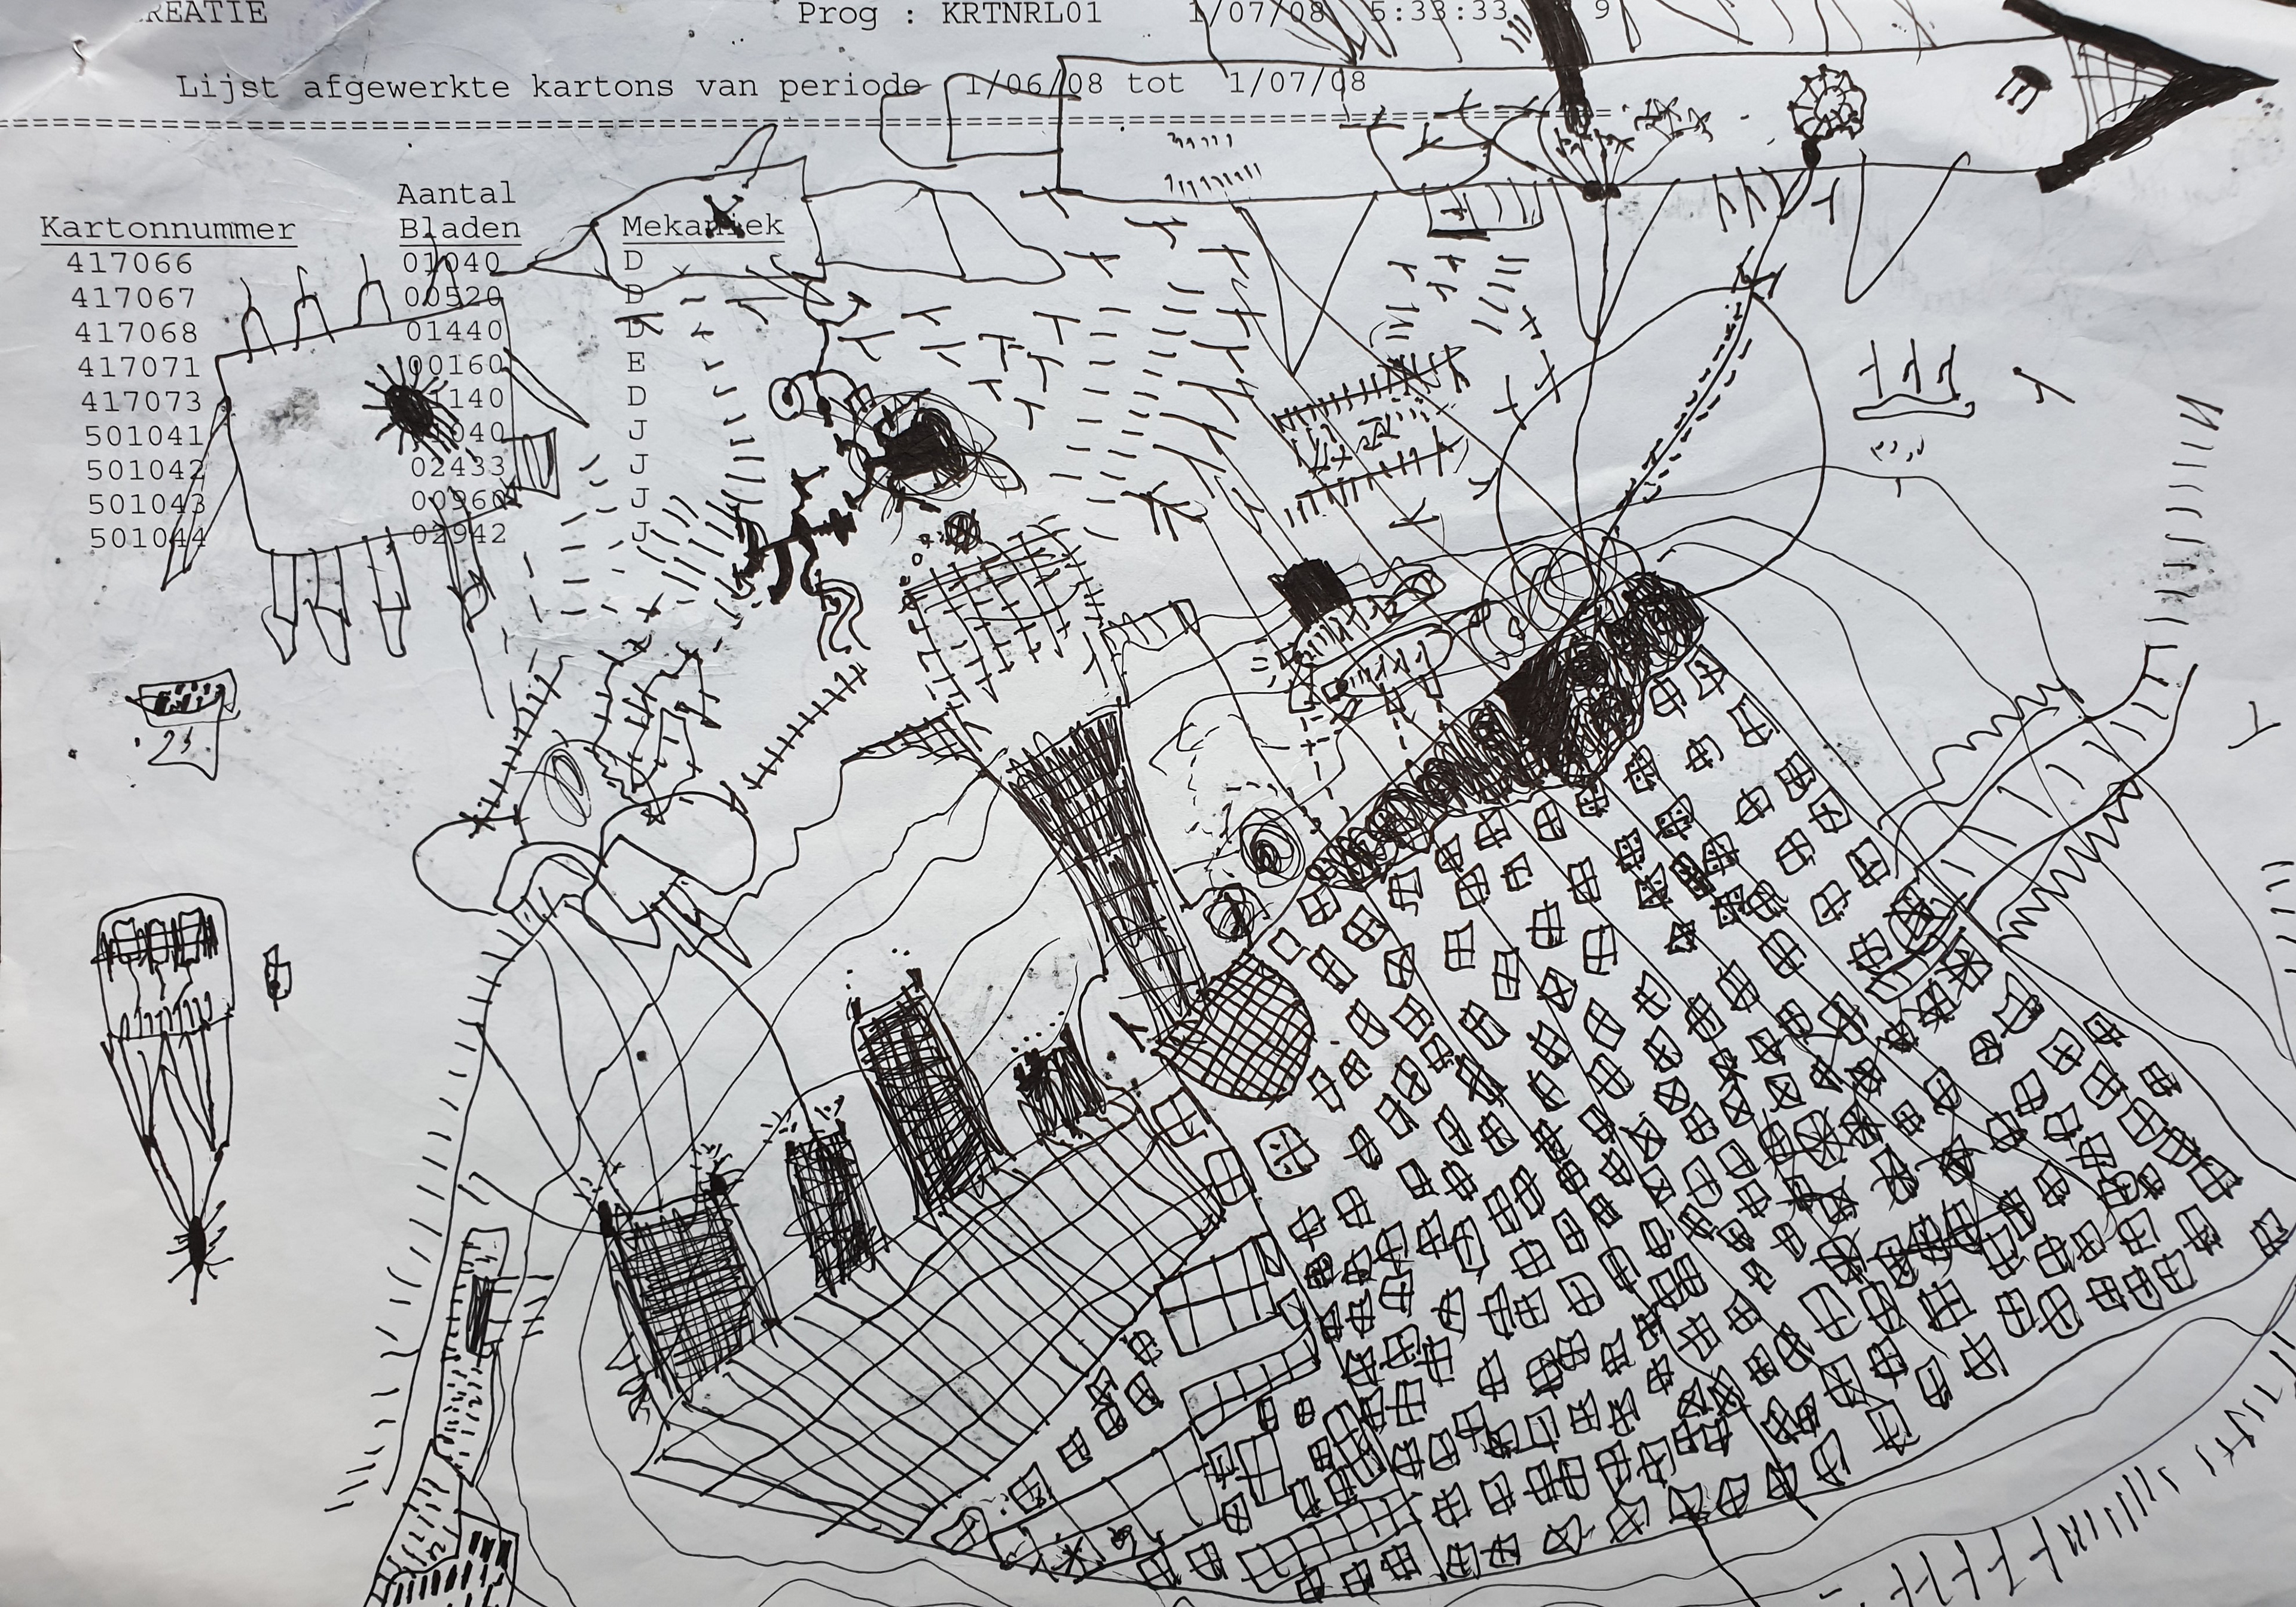 REATIE Prog : KRTNRL01 1/07/08 5:33:33 9
Lijst afgewerkte kartons van periode 1/06/08 tot 1/07/08
Aantal
Kartonnummer Bladen Mekaniek
417066 01040 D
417067 00520 D
417068 01440 D
417071 00160 E
417073 1140 D
501041 040 J
501042 02433 J
501043 00960 J
501044 02942 J